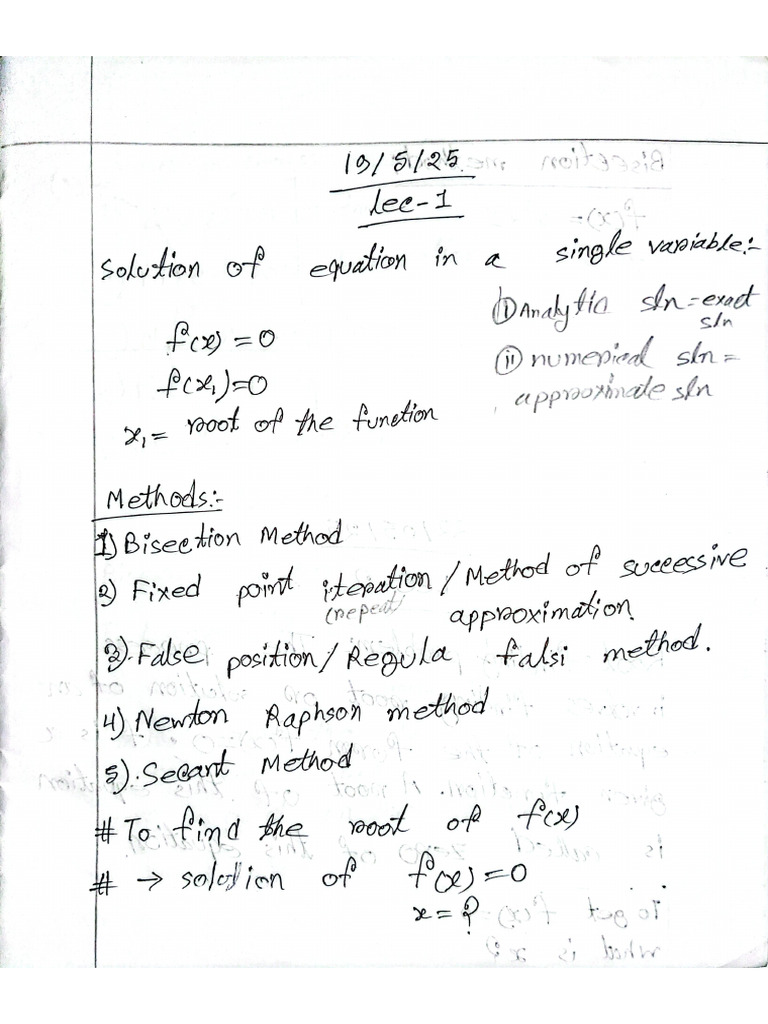 19/5/25
Lec-1
Solution of equation in a single variable:-
(i) Analytic sln = exact
sln
f(x) = 0
(ii) numerical sln =
approximate sln
f(x₁) = 0
x₁ = root of the function
Methods:-
1) Bisection Method
2) Fixed point iteration / Method of successive
(repeat) approximation.
3) False position / Regula falsi method.
4) Newton Raphson method
5) Secant Method
# To find the root of f(x)
# → solution of f(x) = 0
x = ?